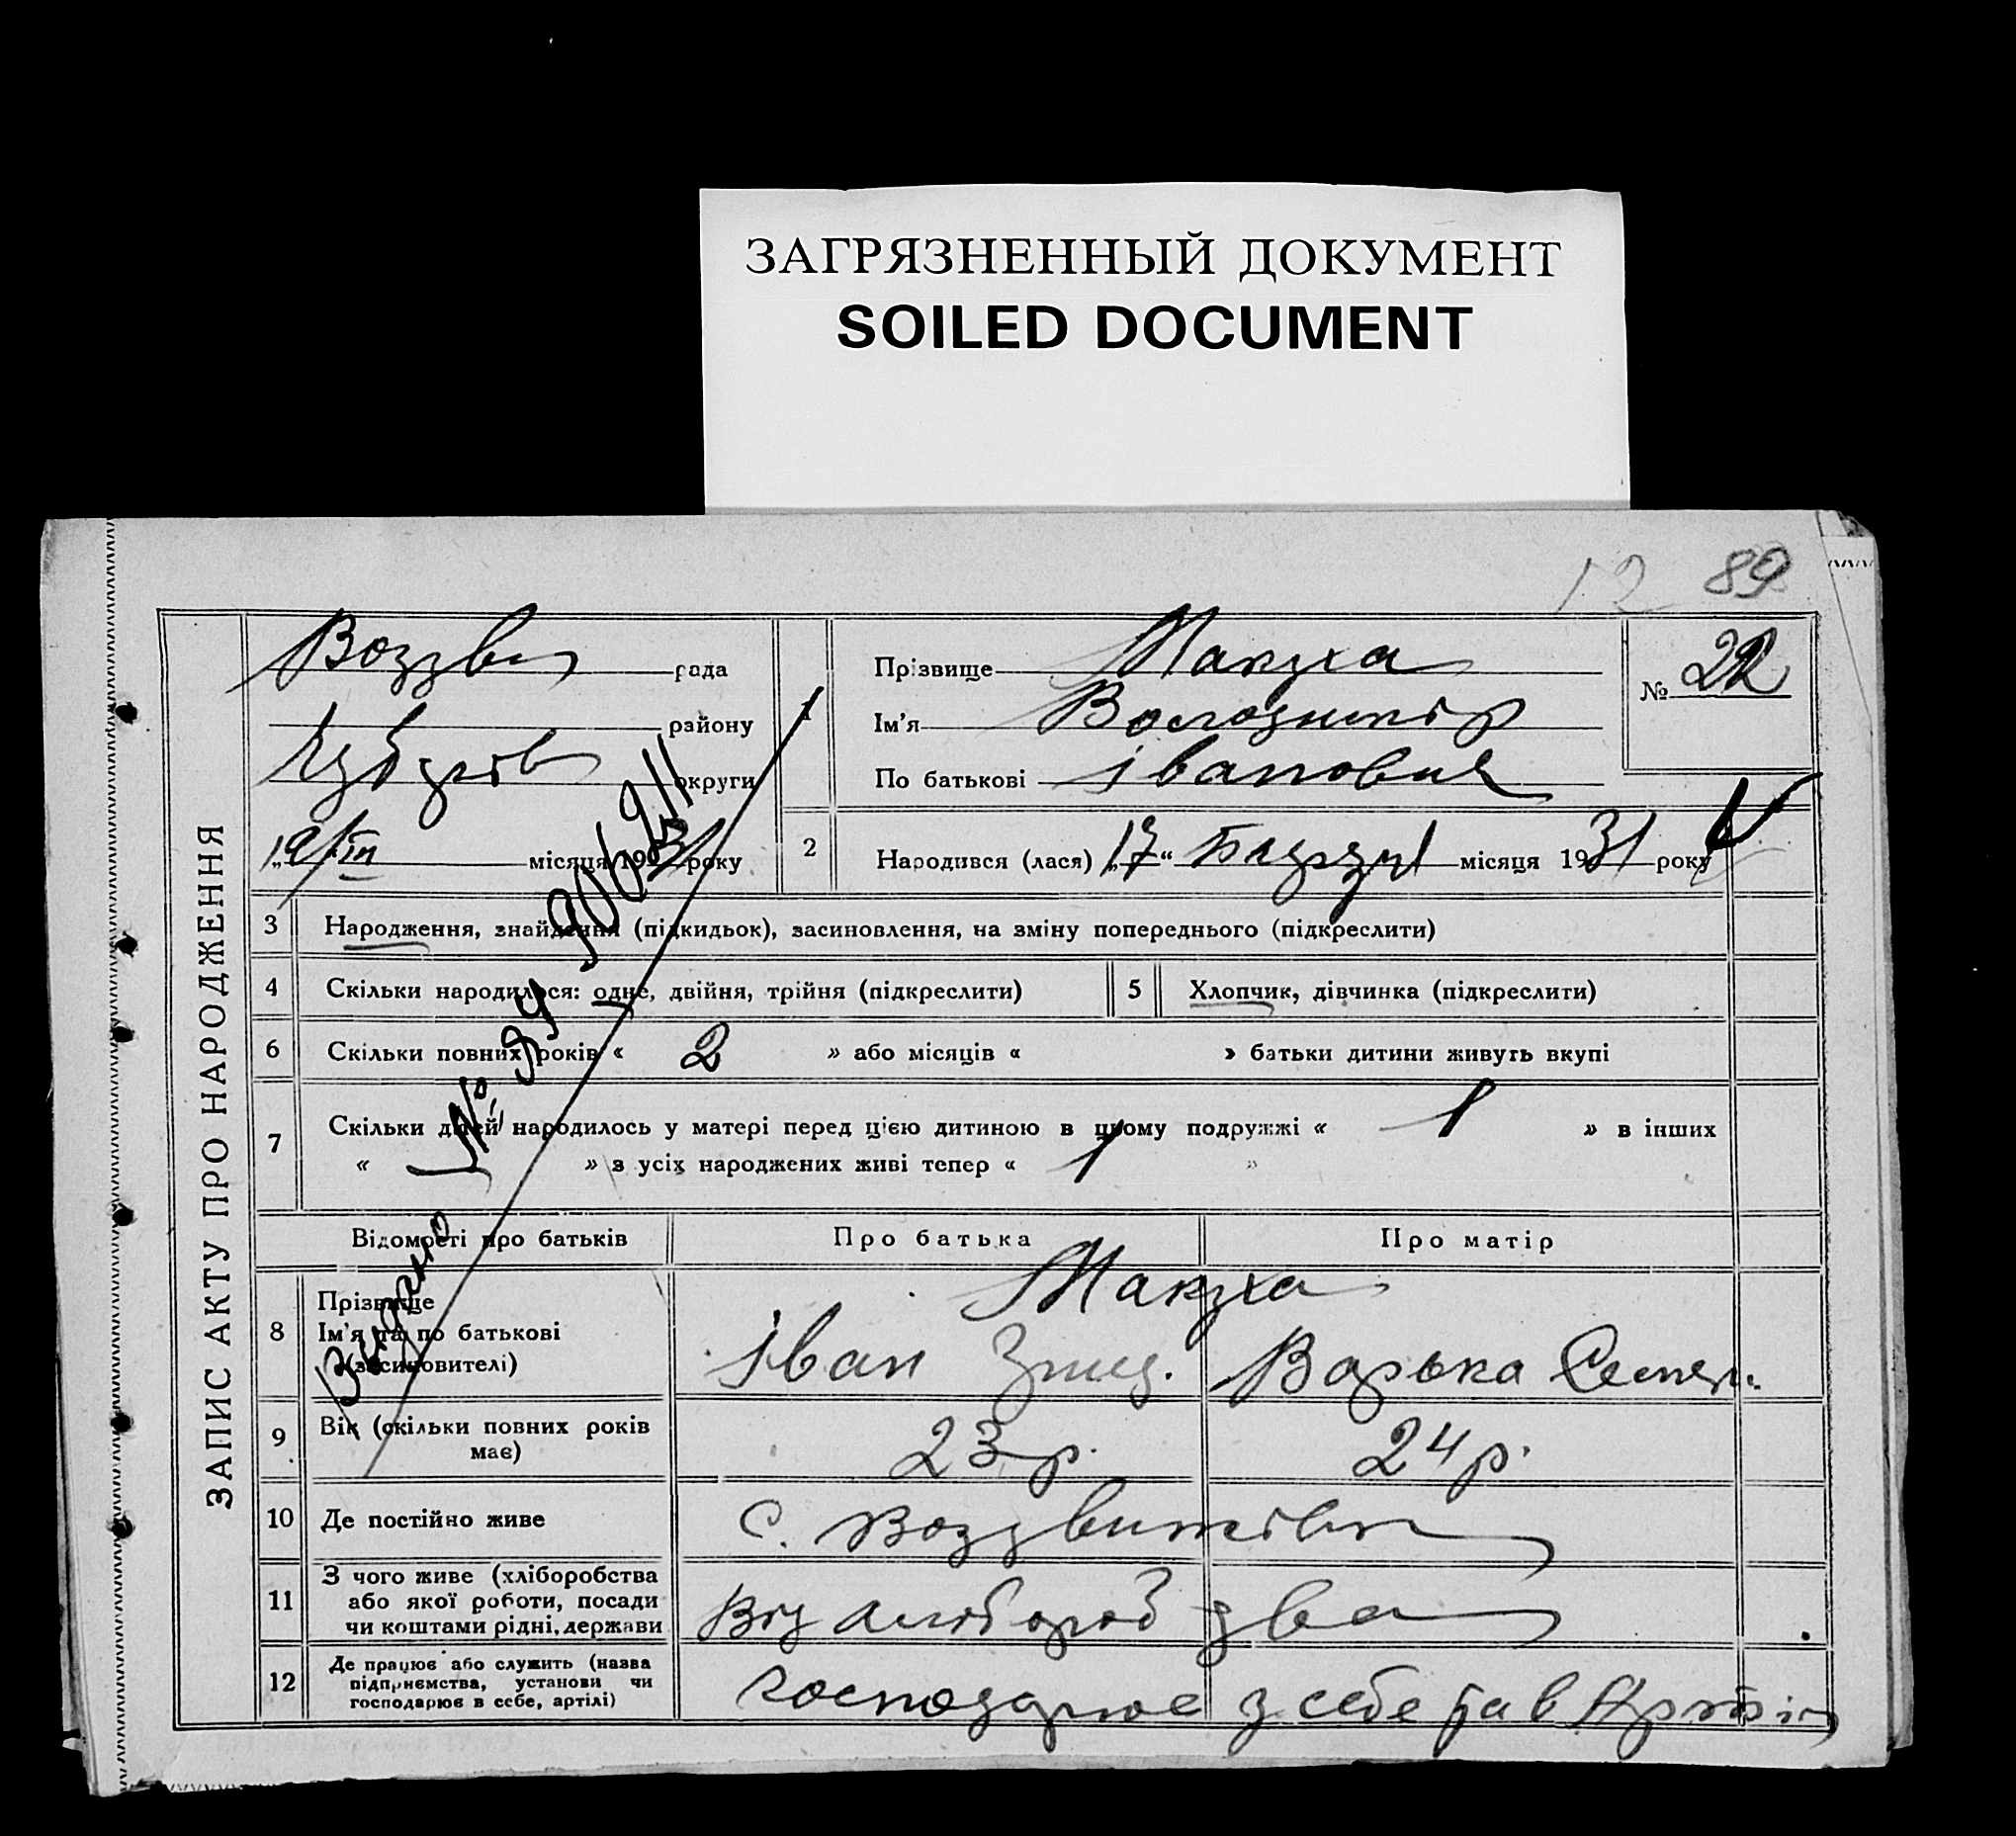 ЗАГРЯЗНЕННЫЙ ДОКУМЕНТ
SOILED DOCUMENT
12 89
ЗАПИС АКТУ ПРО НАРОДЖЕННЯ
рада
району
округи
місяця 1931 року
1
Прізвище Макуха
Ім'я Володимір
По батькові Іванович
№ 22
2 Народився (лася) „17“ місяця 1931 року
3 Народження, знайдення (підкидьок), засиновлення, на зміну попереднього (підкреслити)
4 Скільки народилося: одне, двійня, трійня (підкреслити)
5 Хлопчик, дівчинка (підкреслити)
6 Скільки повних років « 2 » або місяців « » батьки дитини живуть вкупі
7 Скільки дітей народилось у матері перед цією дитиною в цьому подружжі « 1 » в інших
« » з усіх народжених живі тепер « 1 »
Видано №
Відомості про батьків Про батька Про матір
8 Прізвище
Ім'я та по батькові
(засиновителі)
Макуха
Іван Варька Семен.
9 Вік (скільки повних років
має)
23 р. 24 р.
10 Де постійно живе
с. Воздвижівка
11 З чого живе (хліборобства
або якої роботи, посади
чи коштами рідні, держави
Від хлібороб
12 Де працює або служить (назва
підприємства, установи чи
господарює в себе, артілі)
господарює з себе в Артілі